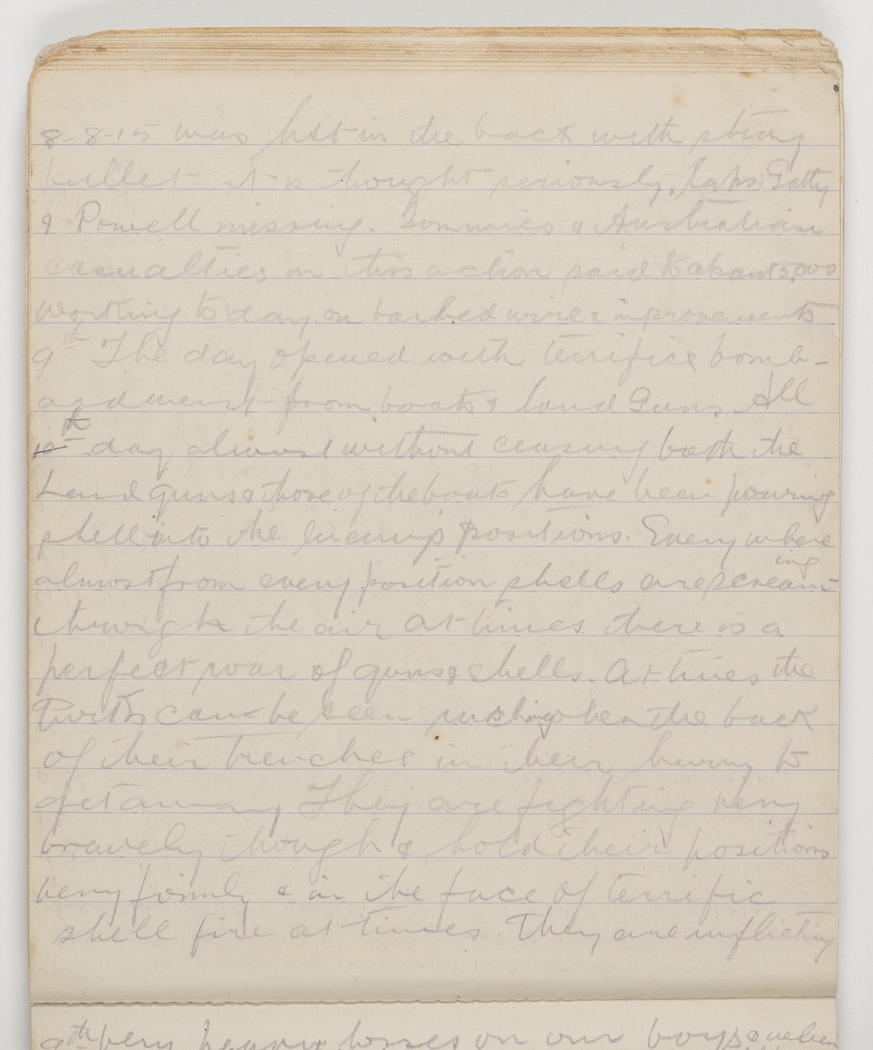 8-8-15 was hit in the back with stray
bullet it is thought seriously, Capts Gatty
& Powell missing. Tommies & Australian
casualties in this action said to about 5,000
working to day on barbed wire & improvements
9th The day opened with terrifice bomb-
ardment from boats & land Guns. All
10th day almost without ceasing both the
Land guns & those of the boats have been pouring
shell into the Enemy's positions. Everywhere
almost from every position shells are screaming
through the air at times there is a
perfect roar of guns & shells. At times the
Turks can be seen rushing the back
of their trenches in their hurry to
get away They are fighting very
bravely though & hold their positions
very firmly & in the face of terrific
shell fire at times. They are inflicting
9th very heavy losses on our boys &